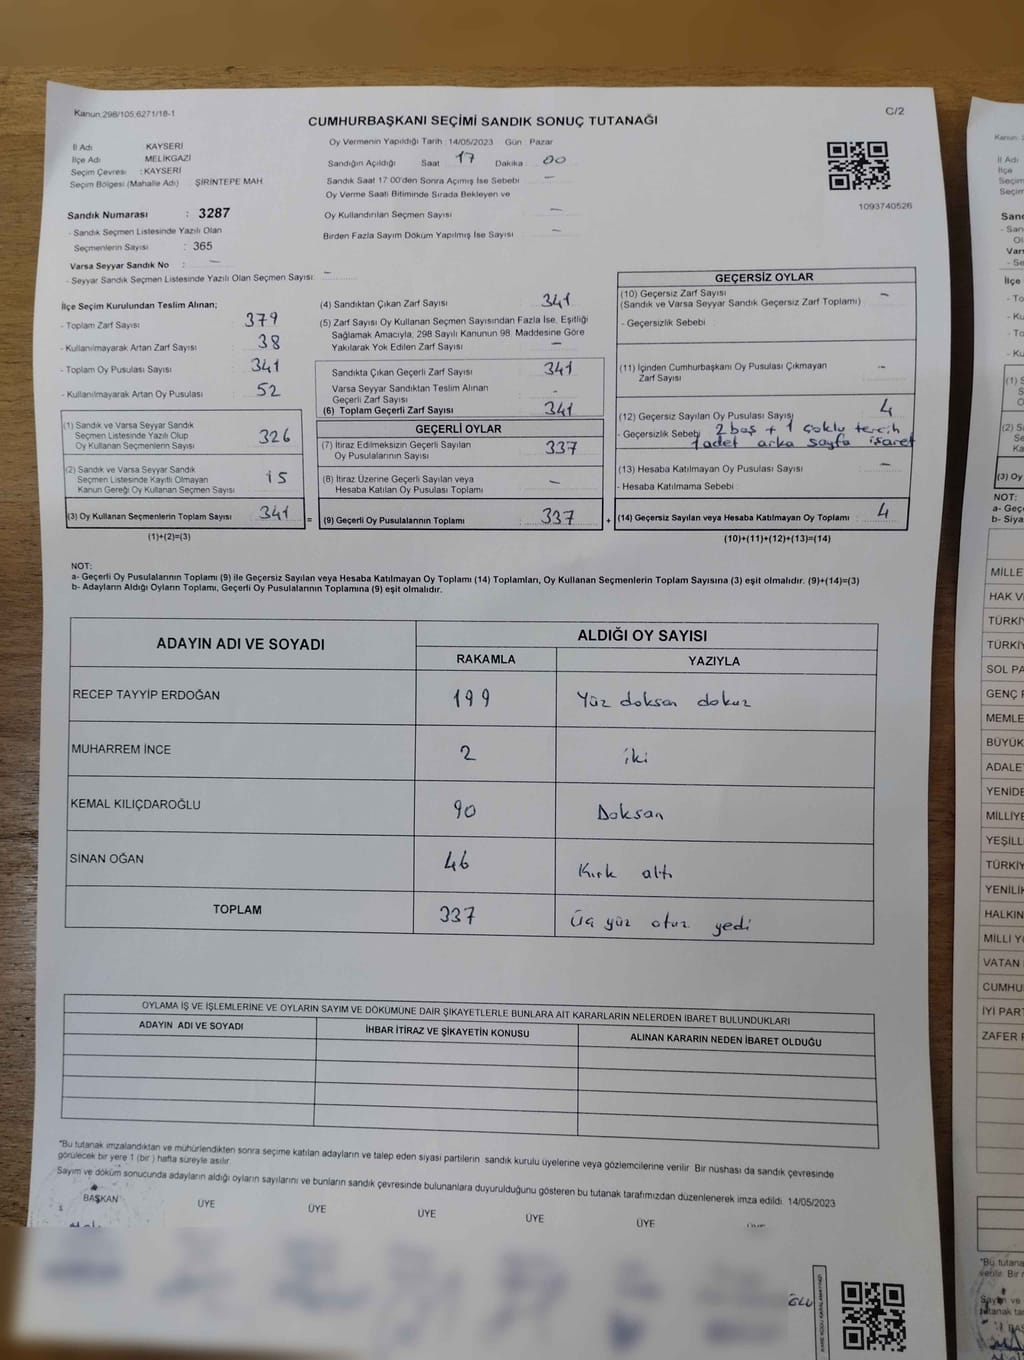 Kanun:298/105,6271/18-1
C/2
CUMHURBAŞKANI SEÇİMİ SANDIK SONUÇ TUTANAĞI
Oy Vermenin Yapıldığı Tarih :14/05/2023 Gün : Pazar
İl Adı KAYSERİ
İlçe Adı MELİKGAZİ
Seçim Çevresi :KAYSERİ
Seçim Bölgesi (Mahalle Adı) : ŞİRİNTEPE MAH
Sandığın Açıldığı Saat 17 Dakika 00
Sandık Saat 17:00'den Sonra Açımış İse Sebebi : —
Oy Verme Saati Bitiminde Sırada Bekleyen ve
Oy Kullandırılan Seçmen Sayısı : —
Birden Fazla Sayım Döküm Yapılmış İse Sayısı : —
1093740526
Sandık Numarası : 3287
- Sandık Seçmen Listesinde Yazılı Olan
Seçmenlerin Sayısı : 365
Varsa Seyyar Sandık No : —
- Seyyar Sandık Seçmen Listesinde Yazılı Olan Seçmen Sayısı: —
İlçe Seçim Kurulundan Teslim Alınan;
- Toplam Zarf Sayısı : 379
- Kullanılmayarak Artan Zarf Sayısı : 38
- Toplam Oy Pusulası Sayısı : 341
- Kullanılmayarak Artan Oy Pusulası : 52
(1) Sandık ve Varsa Seyyar Sandık
Seçmen Listesinde Yazılı Olup
Oy Kullanan Seçmenlerin Sayısı : 326
(2) Sandık ve Varsa Seyyar Sandık
Seçmen Listesinde Kayıtlı Olmayan
Kanun Gereği Oy Kullanan Seçmen Sayısı : 15
(3) Oy Kullanan Seçmenlerin Toplam Sayısı : 341
(1)+(2)=(3)
(4) Sandıktan Çıkan Zarf Sayısı : 341
(5) Zarf Sayısı Oy Kullanan Seçmen Sayısından Fazla İse, Eşitliği
Sağlamak Amacıyla, 298 Sayılı Kanunun 98. Maddesine Göre
Yakılarak Yok Edilen Zarf Sayısı : —
Sandıkta Çıkan Geçerli Zarf Sayısı : 341
Varsa Seyyar Sandıktan Teslim Alınan
Geçerli Zarf Sayısı : -
(6) Toplam Geçerli Zarf Sayısı : 341
GEÇERLİ OYLAR
(7) İtiraz Edilmeksizin Geçerli Sayılan
Oy Pusulasının Sayısı : 337
(8) İtiraz Üzerine Geçerli Sayılan veya
Hesaba Katılan Oy Pusulası Toplamı : —
= (9) Geçerli Oy Pusulalarının Toplamı : 337
GEÇERSİZ OYLAR
(10) Geçersiz Zarf Sayısı : —
(Sandık ve Varsa Seyyar Sandık Geçersiz Zarf Toplamı)
- Geçersizlik Sebebi :
(11) İçinden Cumhurbaşkanı Oy Pusulası Çıkmayan
Zarf Sayısı : —
(12) Geçersiz Sayılan Oy Pusulası Sayısı : 4
- Geçersizlik Sebebi : 2 boş + 1 çoklu tercih
1 adet arka sayfa işaret
(13) Hesaba Katılmayan Oy Pusulası Sayısı : —
- Hesaba Katılmama Sebebi :
+ (14) Geçersiz Sayılan veya Hesaba Katılmayan Oy Toplamı : 4
(10)+(11)+(12)+(13)=(14)
NOT:
a- Geçerli Oy Pusulalarının Toplamı (9) ile Geçersiz Sayılan veya Hesaba Katılmayan Oy Toplamı (14) Toplamları, Oy Kullanan Seçmenlerin Toplam Sayısına (3) eşit olmalıdır. (9)+(14)=(3)
b- Adayların Aldığı Oyların Toplamı, Geçerli Oy Pusulalarının Toplamına (9) eşit olmalıdır.
ADAYIN ADI VE SOYADI ALDIĞI OY SAYISI
RAKAMLA YAZIYLA
RECEP TAYYİP ERDOĞAN 199 Yüz doksan dokuz
MUHARREM İNCE 2 iki
KEMAL KILIÇDAROĞLU 90 Doksan
SİNAN OĞAN 46 Kırk altı
TOPLAM 337 Üç yüz otuz yedi
OYLAMA İŞ VE İŞLEMLERİNE VE OYLARIN SAYIM VE DÖKÜMÜNE DAİR ŞİKAYETLERLE BUNLARA AİT KARARLARIN NELERDEN İBARET BULUNDUKLARI
ADAYIN ADI VE SOYADI İHBAR İTİRAZ VE ŞİKAYETİN KONUSU ALINAN KARARIN NEDEN İBARET OLDUĞU
"Bu tutanak imzalandıktan ve mühürlendikten sonra seçime katılan adayların ve talep eden siyasi partilerin sandık kurulu üyelerine veya gözlemcilerine verilir. Bir nüshası da sandık çevresinde
görülecek bir yere 1 (bir ) hafta süreyle asılır.
Sayım ve döküm sonucunda adayların aldığı oyların sayılarını ve bunların sandık çevresinde bulunanlara duyurulduğunu gösteren bu tutanak tarafımızdan düzenlenerek imza edildi. 14/05/2023
BAŞKAN ÜYE ÜYE ÜYE ÜYE ÜYE
Kanun:
İl Adı
İlçe
Seçim
MİLLE
HAK V
TÜRKİY
TÜRKİY
SOL PA
GENÇ P
MEMLE
BÜYÜK
ADALE
YENİDE
MİLLİYE
YEŞİLL
TÜRKİY
YENİLİK
HALKIN
MİLLİ YO
VATAN
CUMHU
İYİ PART
ZAFER P